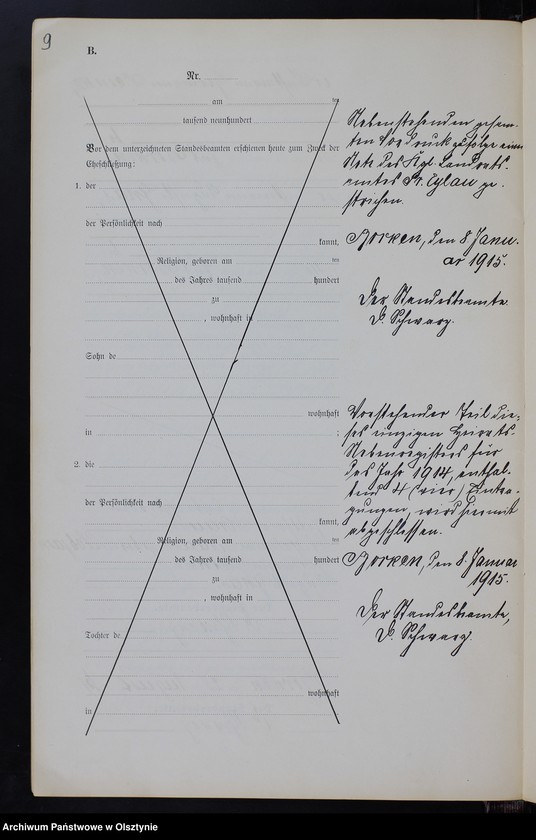 9
B.
Nr.
am ten
tausend neunhundert
Vor dem unterzeichneten Standesbeamten erschienen heute zum Zweck der
Eheschließung:
1. der
der Persönlichkeit nach
kannt,
Religion, geboren am ten
des Jahres tausend hundert
zu
, wohnhaft in
Sohn de
wohnhaft
in ;
2. die
der Persönlichkeit nach
kannt,
Religion, geboren am ten
des Jahres tausend hundert
zu
, wohnhaft in
Tochter de
wohnhaft
in
Nebenstehenden gesam-
ten Vordruck zufolge
des Kgl. Landrats-
amtes Pr. Eylau ge-
strichen.
Borken, den 8 Janu-
ar 1915.
Der Standesbeamte.
Schwarz.
Vorstehender Teil die-
ses einzigen Heirats-
Nebenregisters für
das Jahr 1914, enthal-
tend 4 (vier) Eintra-
gungen, wird hiermit
abgeschlossen.
Borken, den 8. Januar
1915.
Der Standesbeamte,
Schwarz.
Archiwum Państwowe w Olsztynie